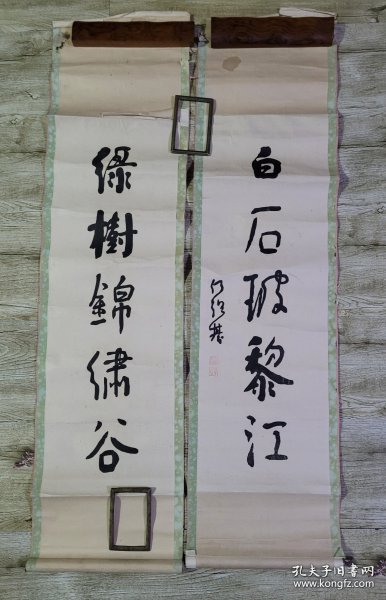 白石玻黎江
何绍基
綠樹錦繡谷
孔夫子旧书网
www.kongfz.com